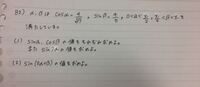 B2) α, βは cosα = 2/√5, sinβ = 4/5, 0<α<π/2, π/2<β<π を
満たしている。
(1) sinα, cosβの値をそれぞれ求めよ。
また sin の値を求めよ。
(2) sin(2α+β)の値を求めよ。